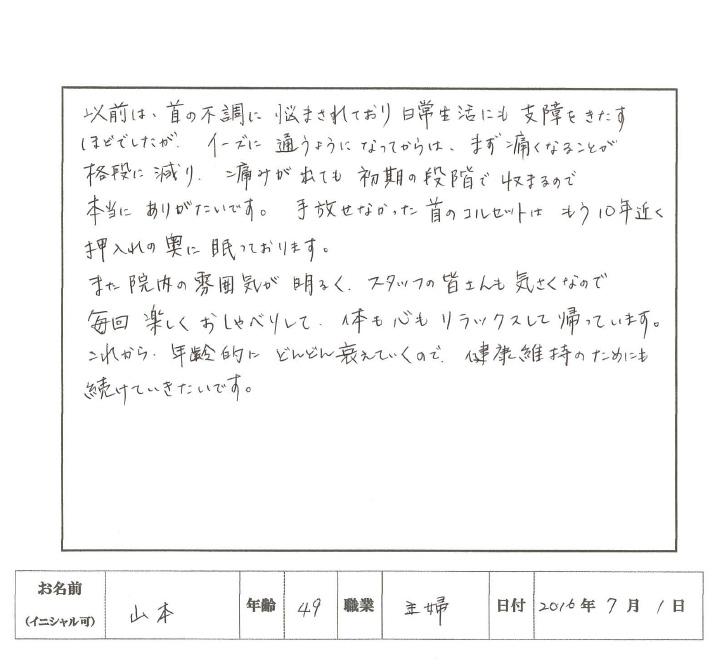 以前は、首の不調に悩まされており日常生活にも支障をきたす
ほどでしたが、イーズに通うようになってからは、まず痛くなることが
格段に減り、痛みが出ても初期の段階で収まるので
本当にありがたいです。手放せなかった首のコルセットはもう10年近く
押入れの奥に眠っております。
また院内の雰囲気が明るく、スタッフの皆さんも気さくなので
毎回楽しくおしゃべりして、体も心もリラックスして帰っています。
これから、年齢的にどんどん衰えていくので、健康維持のためにも
続けていきたいです。
お名前 (イニシャル可) 山本 年齢 49 職業 主婦 日付 2016年7月1日